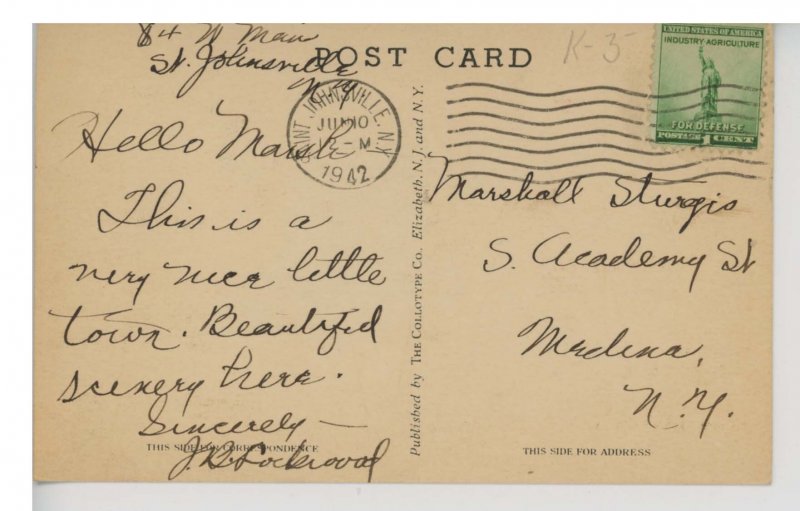 84 W Main
St. Johnsville
N.Y.
POST CARD
K-3
UNITED STATES OF AMERICA
INDUSTRY·AGRICULTURE
FOR DEFENSE
POSTAGE 1 CENT
SAINT JOHNSVILLE, N.Y.
JUN 10
M
1942
Hello Marsh
This is a
very nice little
town. Beautiful
scenery here.
Sincerely —
J.B. Lockwood
THIS SIDE FOR CORRESPONDENCE
Published by THE COLLOTYPE CO., Elizabeth, N. J. and N. Y.
Marshall Sturgis
S. Academy St
Medina,
N.Y.
THIS SIDE FOR ADDRESS